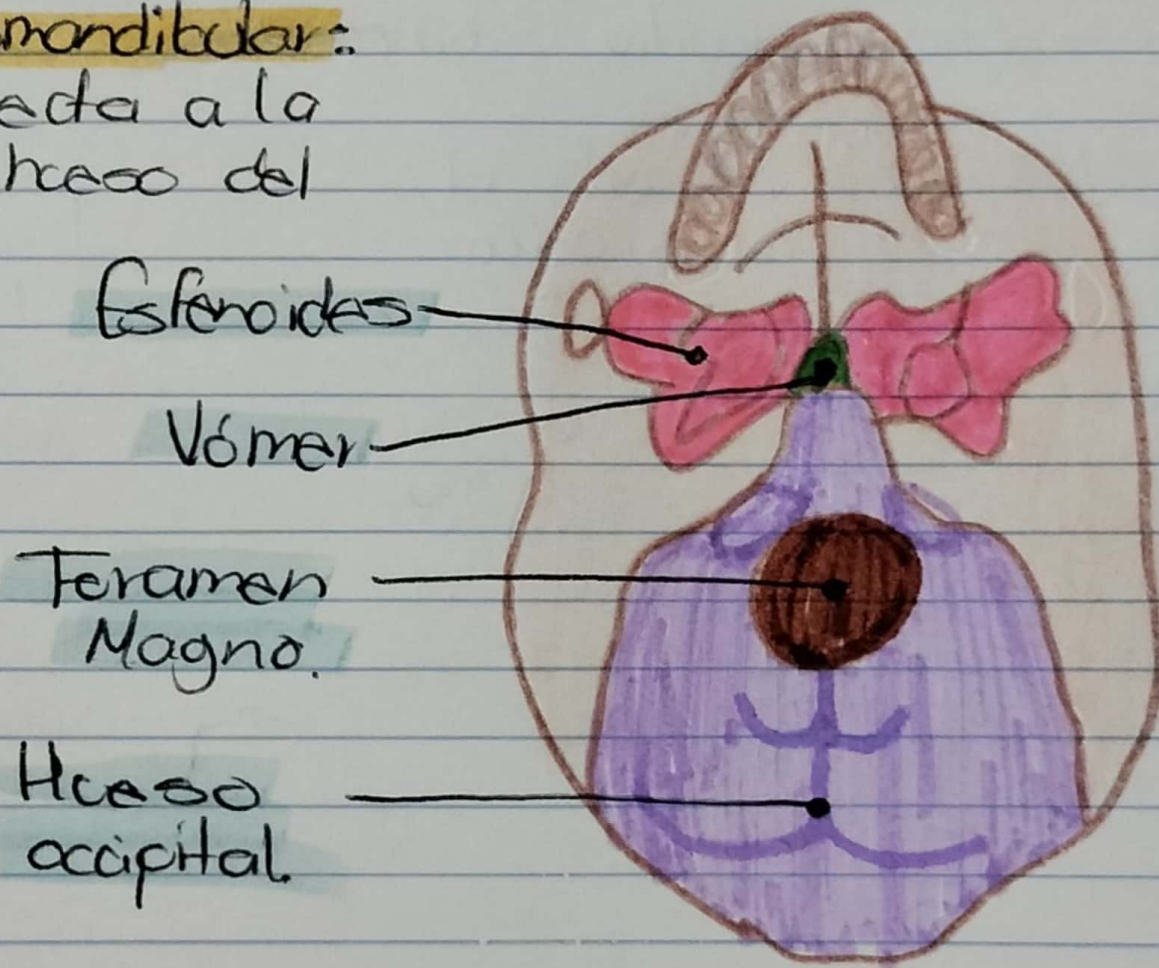 mandibular:
ecta a la
hceso del
Esfenoides
Vómer
Foramen
Magno.
Hceso
occipital.